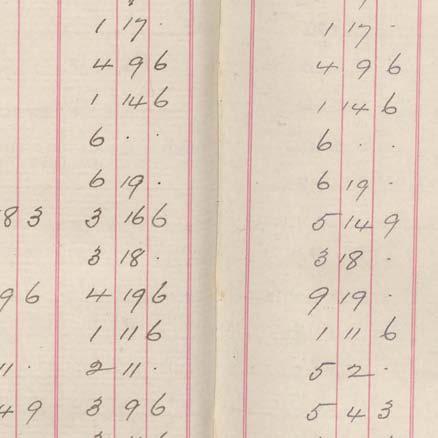 1 17 · 1 17 ·
4 9 6 4 9 6
1 14 6 1 14 6
6 · · 6 · ·
6 19 · 6 19 ·
8 3 3 16 6 5 14 9
3 18 · 3 18 ·
9 6 4 19 6 9 19 ·
1 11 6 1 11 6
11 · 2 11 · 5 2 ·
4 9 3 9 6 5 4 3